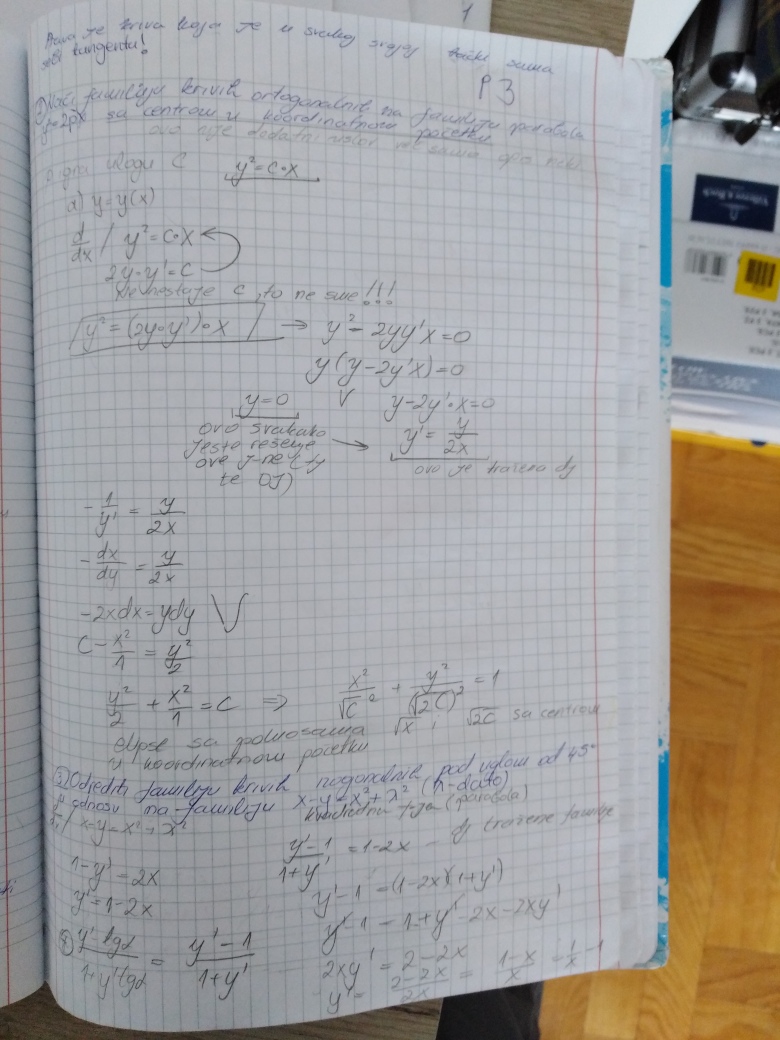 1
Prava je kriva koja je u svakoj svojoj tački sama
sebi tangenta!
P3
② Naći familiju krivih ortogonalnih na familiju parabola
y²=2px sa centrom u koordinatnom početku
ovo nije dodatni uslov već samo
igra ulogu C
y²=C·X
a) y=y(x)
d/dx / y²=C·X
2y·y'=C
nestaje C, to ne sme!!!
y²=(2y·y')·X → y²-2yy'x=0
y(y-2y'x)=0
y=0 V y-2y'·x=0
ovo svakako
jeste rešenje
ove j-ne (tj
te DJ)
→ y'=y/2x
ovo je tražena dj
-1/y'=y/2x
-dx/dy=y/2x
-2xdx=ydy \∫
C-x²/1=y²/2
y²/2+x²/1=C ⇒ x²/√C²+y²/(√2C)²=1
elipse sa poluosama √x i √2C sa centrom
u koordinatnom početku
③ Odrediti familiju krivih izogonalnih pod uglom od 45°
u odnosu na familiju x-y=x²+λ² (λ-dato)
kvadratna f-ja (parabola)
d/dx / x-y=x²+λ²
1-y'=2x
y'=1-2x
y'-tgα/1+y'tgα=y'-1/1+y'
y'-1/1+y'=1-2x - dj tražene familije
y'-1=(1-2x)(1+y')
y'-1=1+y'-2x-2xy'
2xy'=2-2x
y'=2-2x/2x=1-x/x=1/x-1
Villeroy & Boch